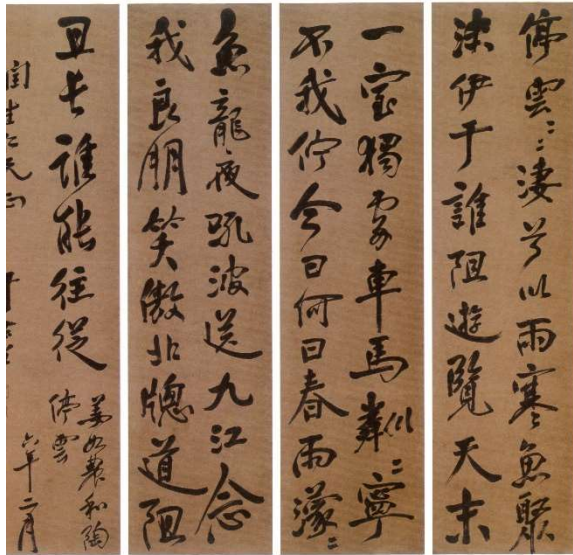 停雲〻〻淒兮以雨寒魚聚
沫伊于誰阻遊覽天末
一室獨處車馬〻寧
不我佇今日何日春雨濛〻
魚龍夜吼波送九江念
我良朋笑傲北牕道阻
且長誰能往從
姜如農和陶
停雲
六年二月
仁兄正